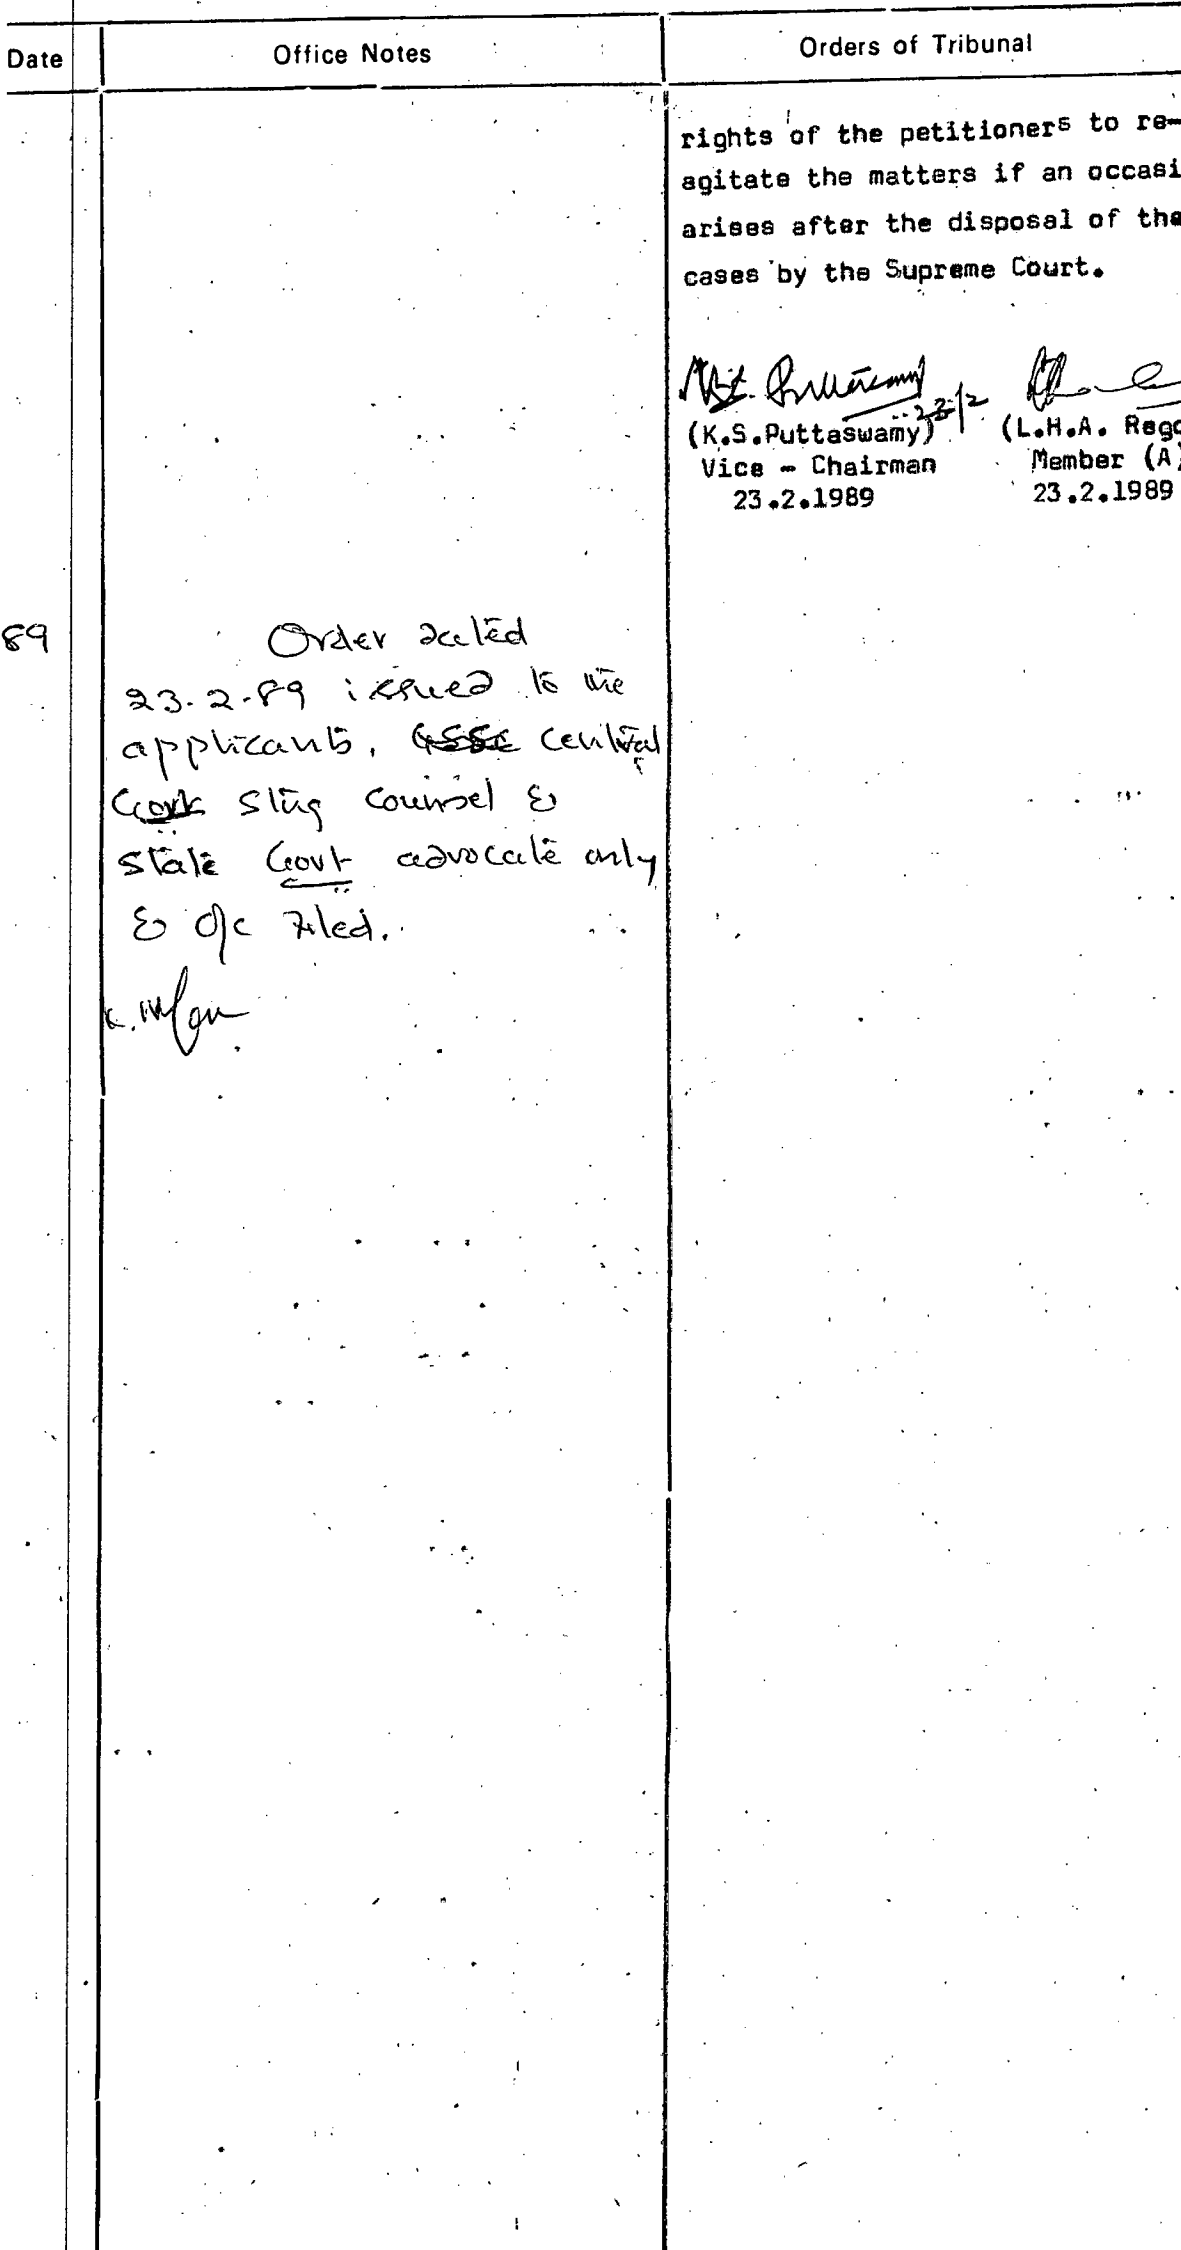 Date Office Notes Orders of Tribunal
rights of the petitioners to re-
agitate the matters if an occasi
arises after the disposal of the
cases by the Supreme Court.
23/2
(K.S.Puttaswamy) (L.H.A. Rego
Vice - Chairman Member (A)
23.2.1989 23.2.1989
89 Order dated
23-2-89 issued to the
applicants, Central
Govt Stng Counsel &
State Govt advocate only
& o/c filed.